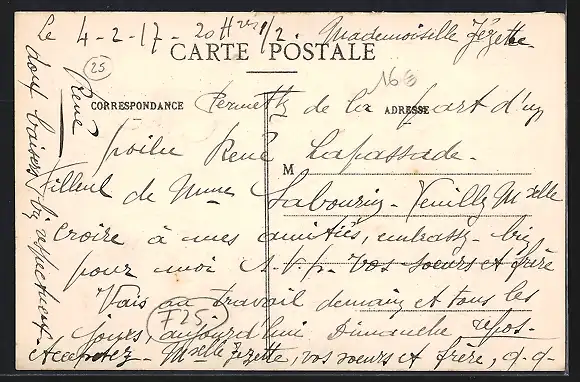 Le 4-2-17- 20 Hres 1/2. Mademoiselle Zézette
CARTE POSTALE
25
168
CORRESPONDANCE
ADRESSE
M
Permettez de la part d'un
poilu René Lapassade-
Filleul de Mme Sabourin- Veuillez Mselle
croire à mes amitiés, embrassez- bien
pour moi S.V.p- Vos soeurs et frère
Vais au travail demain et tous les
jours, aujourd'hui Dimanche repos-
Acceptez- Mselle Zézette, vos soeurs et frère, q-q-
doux baisers bien respectueux-
René
F25